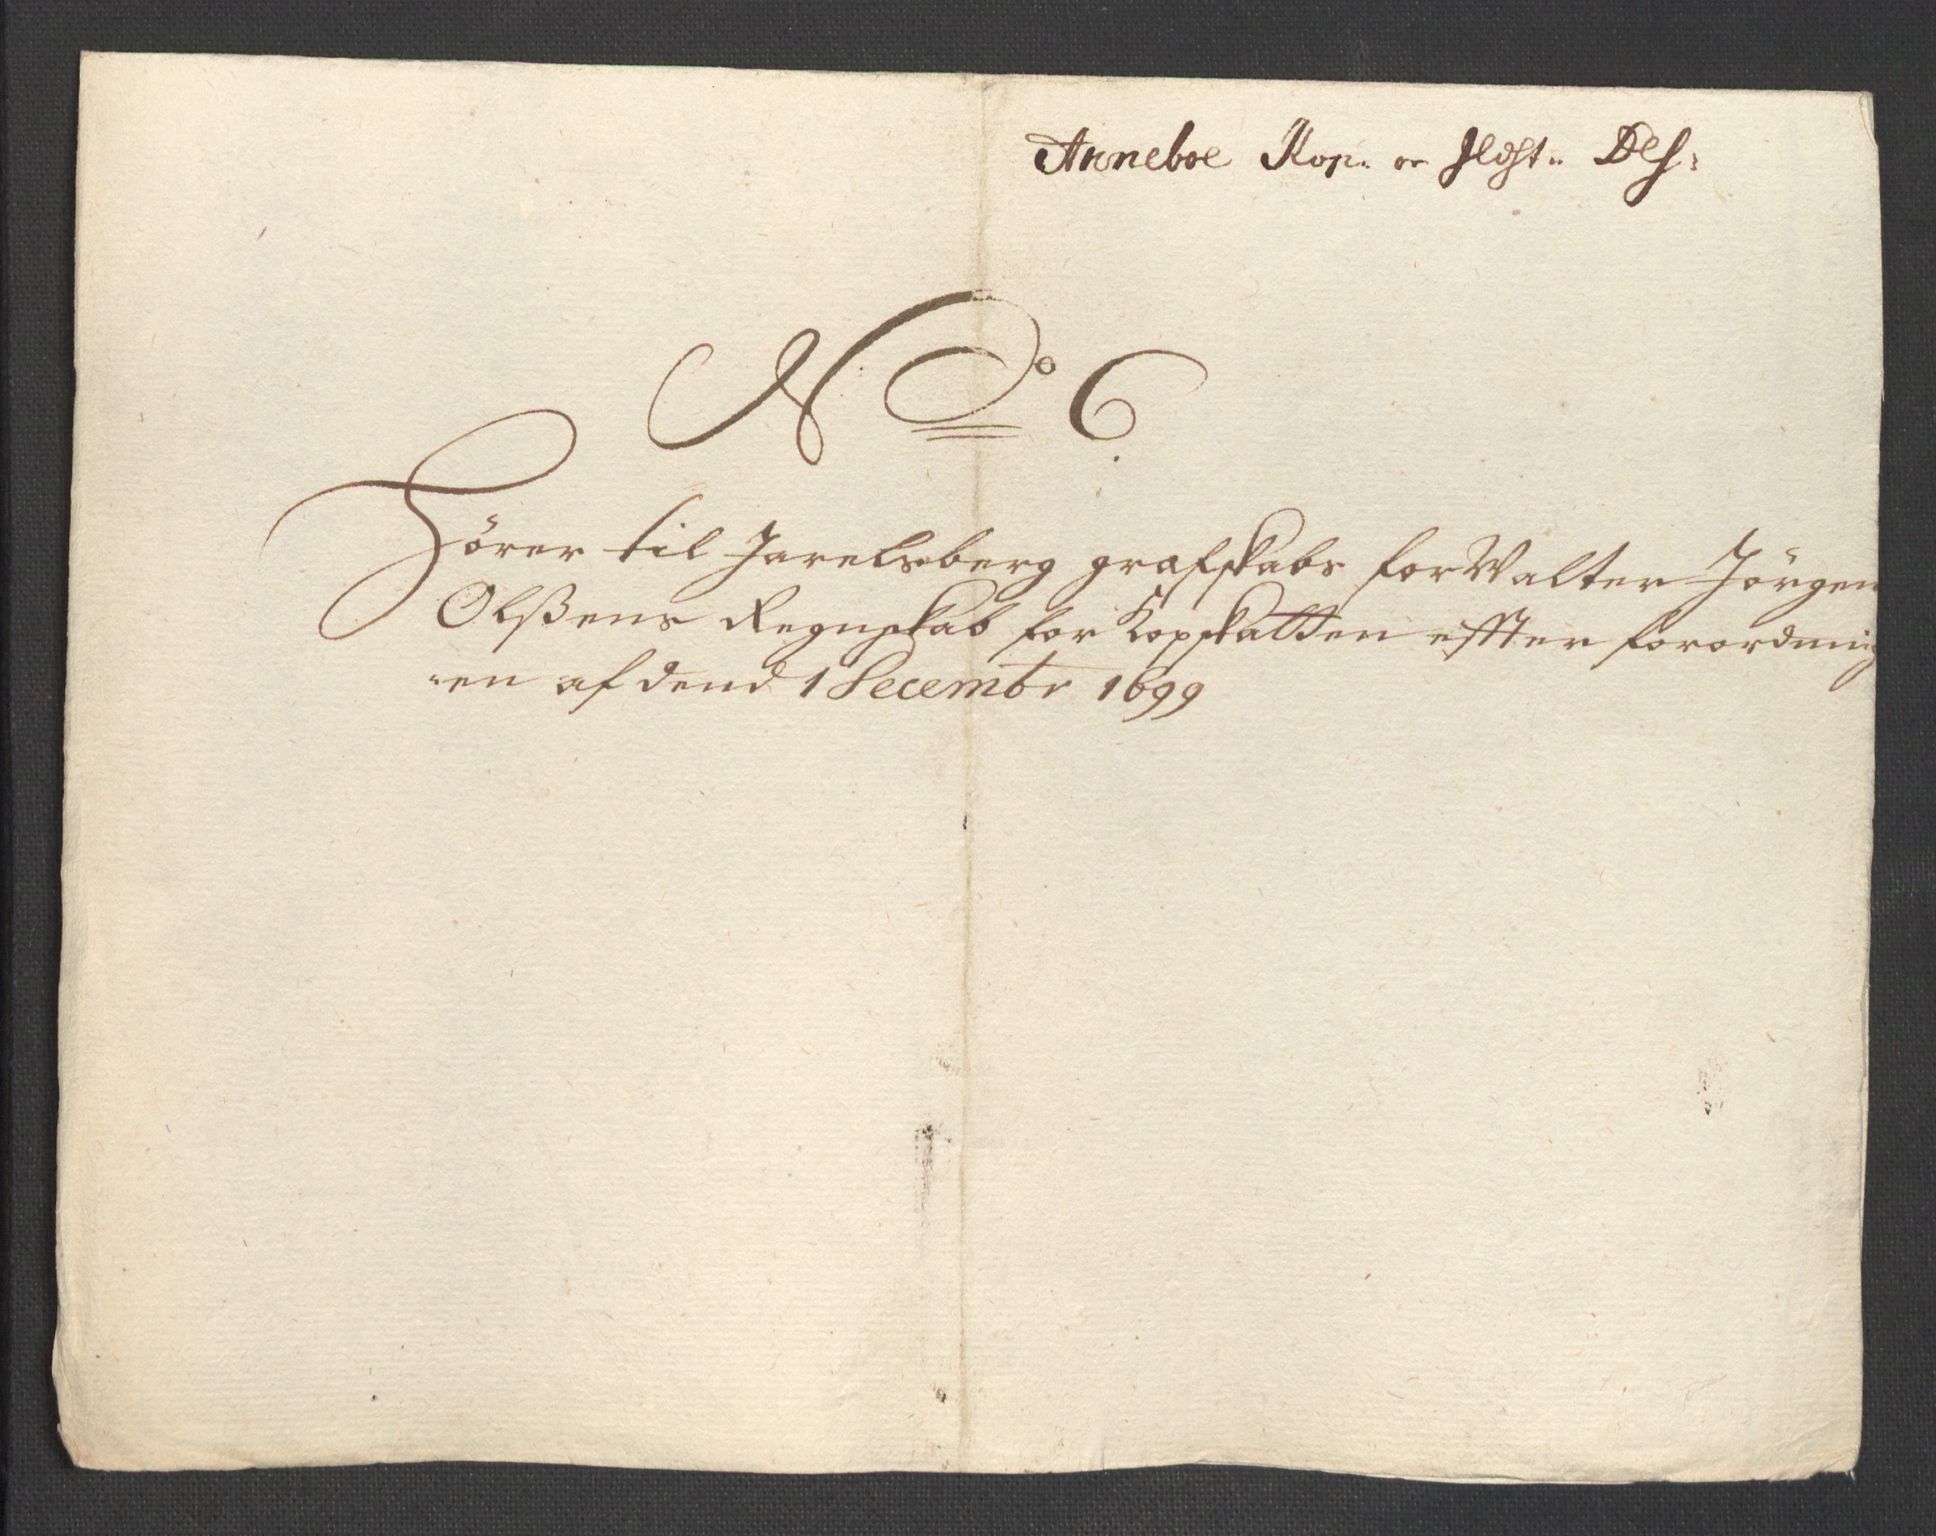 Anneboe Kop: 
No 6
Hörer til Jarelsberg grafskabs forValter Jörgen
Olßens Regnskab for Kopskatten effter forordning
:en af dend 1 Decembr 1699